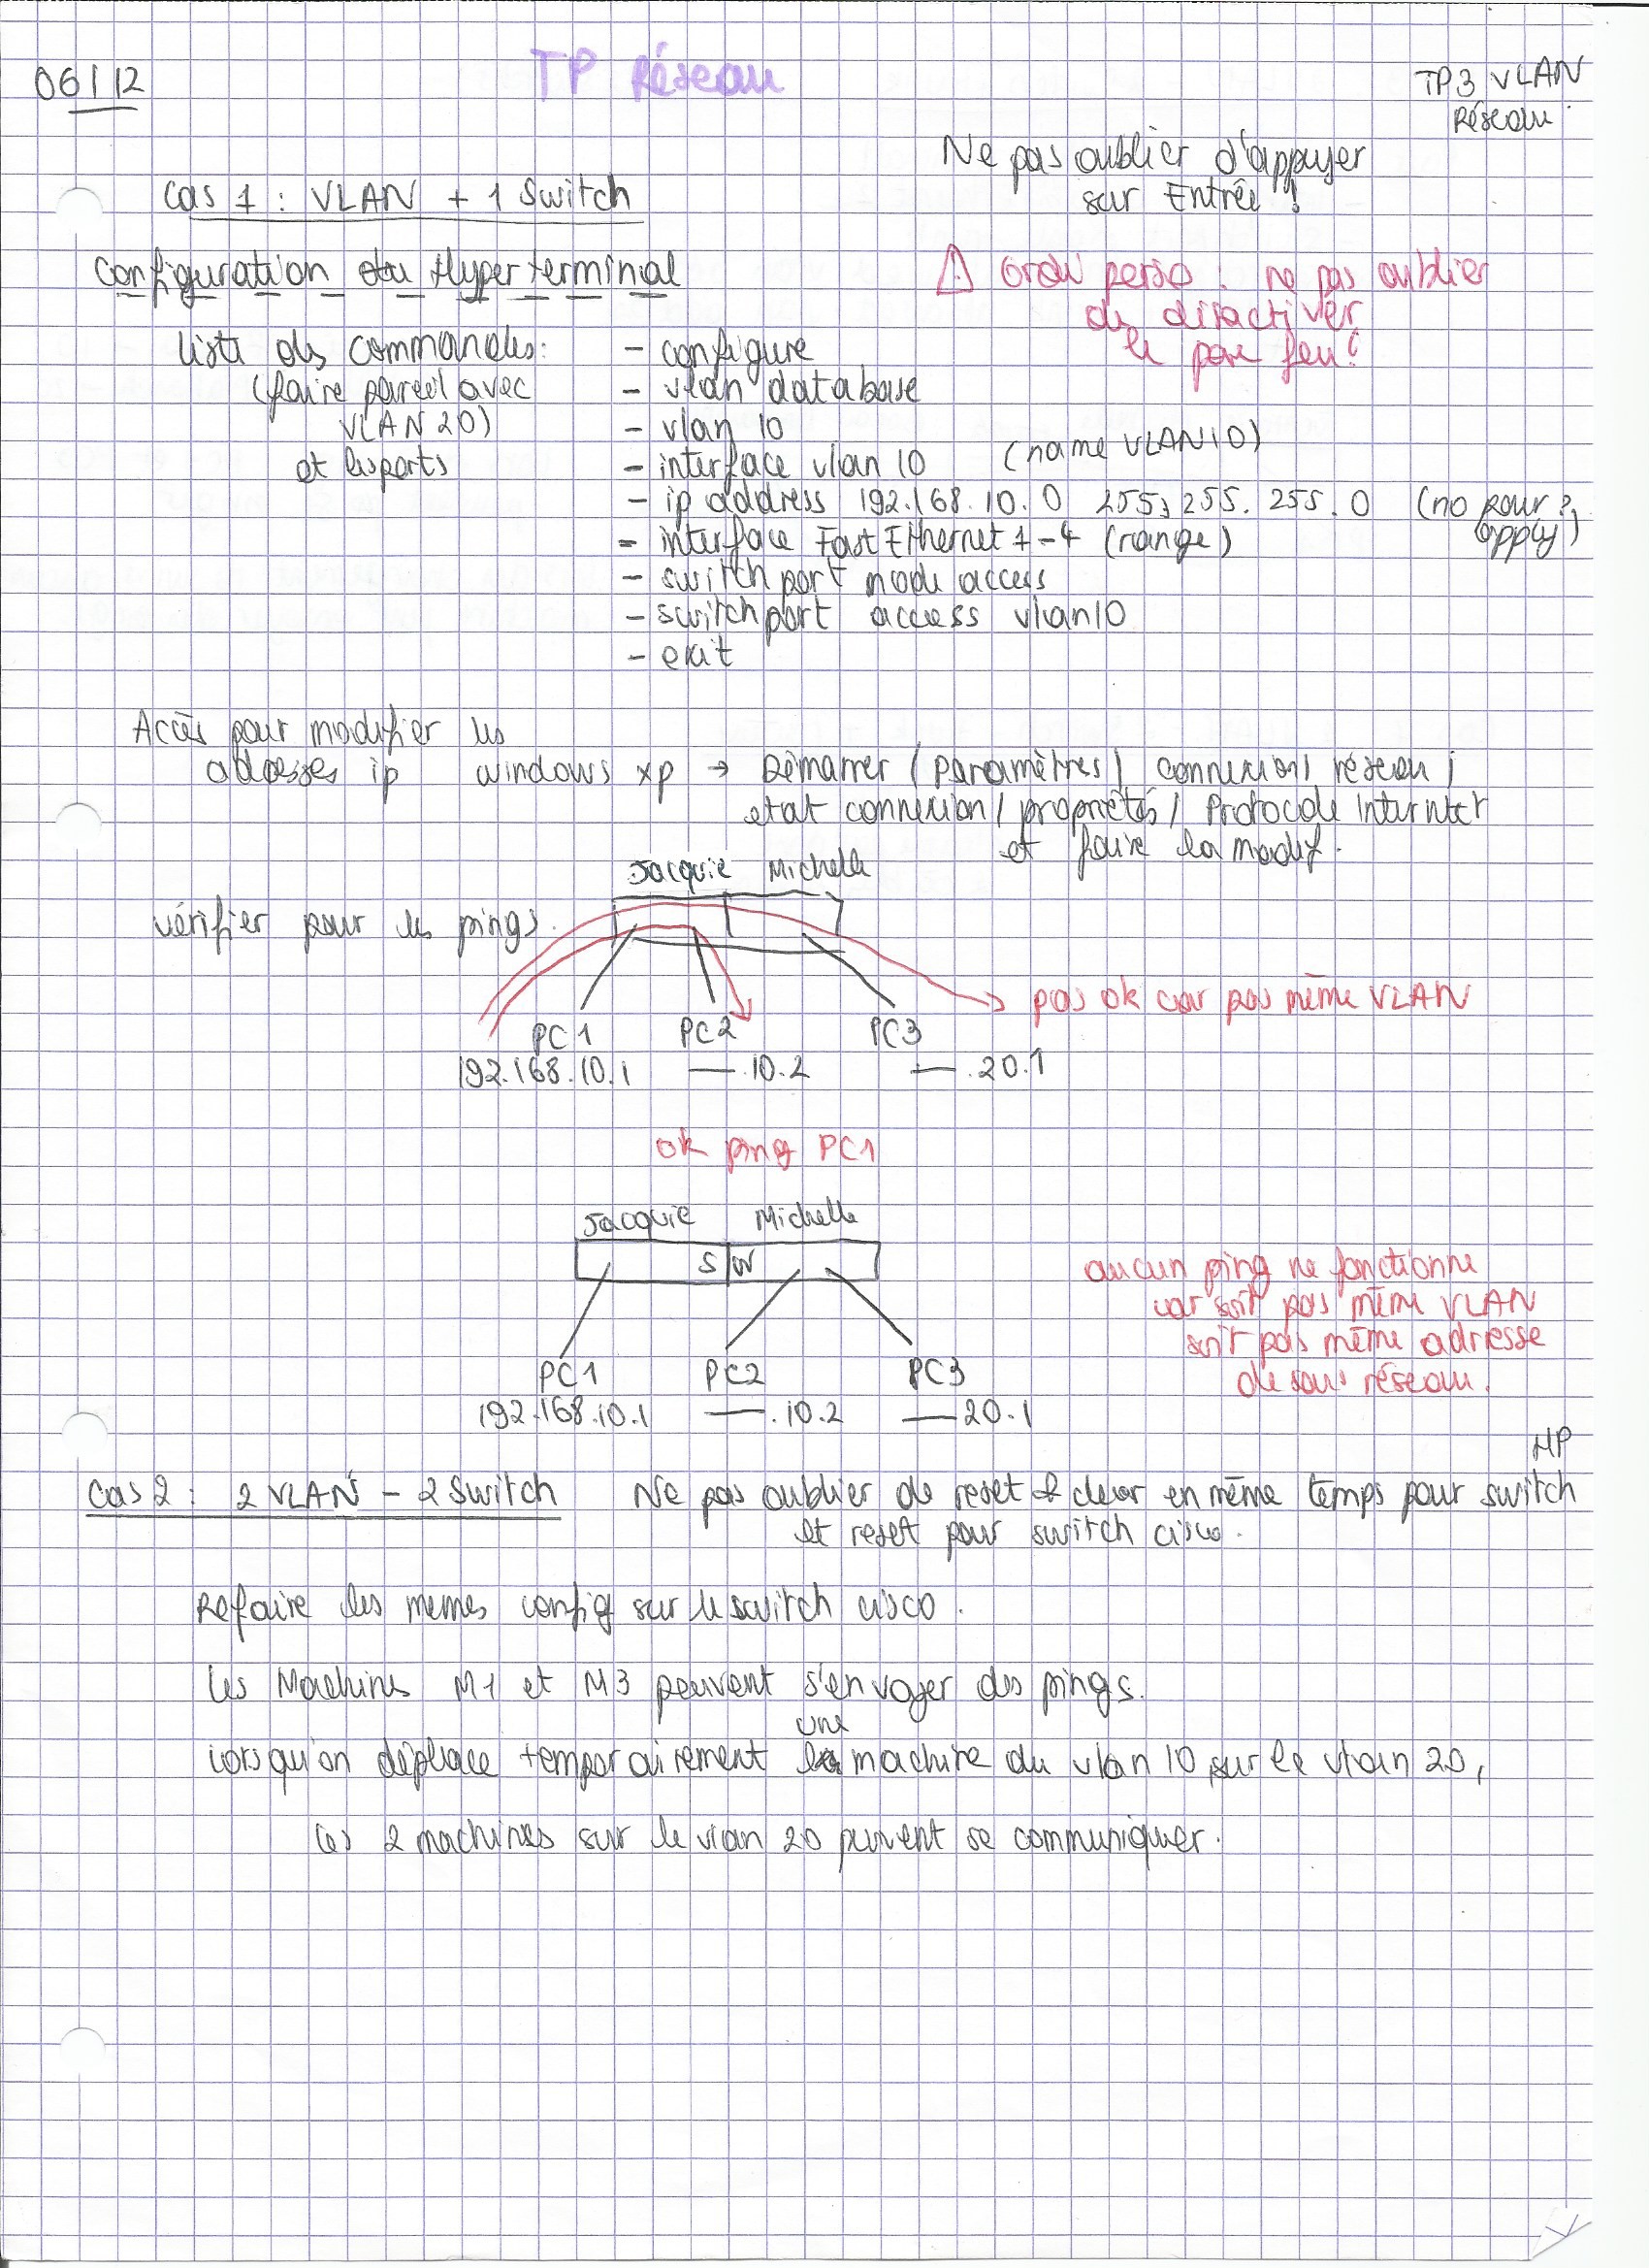 06/12
TP Réseau
TP3 VLAN
Réseau
Ne pas oublier d'appuyer
sur Entrée !
Cas 1 : VLAN + 1 Switch
Configuration du Hyperterminal
⚠ Ordi perso : ne pas oublier
de désactiver
le pare feu !
liste des commandes :
(faire pareil avec
VLAN 20)
et les ports
- configure
- vlan database
- vlan 10
- interface vlan 10 (name VLAN10)
- ip address 192.168.10.0 255.255.255.0 (no pour ?,
apply)
- interface FastEthernet 1-4 (range)
- switchport mode access
- switchport access vlan10
- exit
Accès pour modifier les
adresses ip windows xp → Démarrer / Paramètres / connexion réseau /
etat connexion / propriétés / Protocole Internet
et faire la modif.
vérifier pour les pings.
Jacquie Michelle
pas ok car pas même VLAN
PC1 PC2 PC3
192.168.10.1 — .10.2 — .20.1
ok ping PC1
Jacquie Michelle
SW
aucun ping ne fonctionne
car soit pas même VLAN
soit pas même adresse
de sous réseau.
PC1 PC2 PC3
192.168.10.1 — .10.2 — 20.1
Cas 2 : 2 VLAN - 2 Switch Ne pas oublier de reset & clear en même temps pour switch HP
et reset pour switch cisco.
Refaire les memes config sur le switch cisco.
Les Machines M1 et M3 peuvent s'envoyer des pings.
Lorsqu'on déplace temporairement une machine du vlan 10 sur le vlan 20,
les 2 machines sur le vlan 20 peuvent se communiquer.